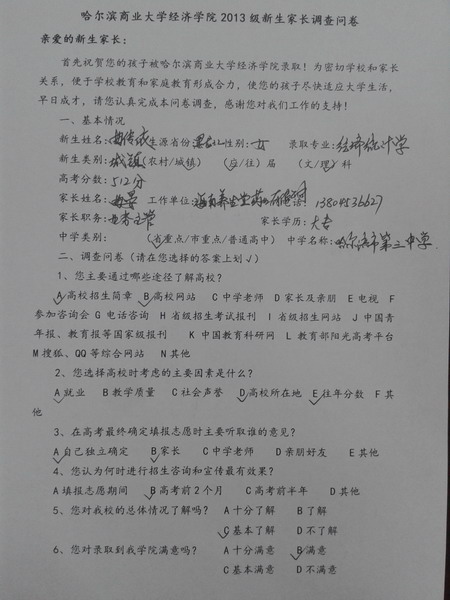 哈尔滨商业大学经济学院2013级新生家长调查问卷
亲爱的新生家长：
首先祝贺您的孩子被哈尔滨商业大学经济学院录取！为密切学校和家长
关系，便于学校教育和家庭教育形成合力，使您的孩子尽快适应大学生活，
早日成才，请您认真完成本问卷调查，感谢您对我们工作的支持！
一、基本情况
新生姓名： 生源省份：黑龙江性别：女 录取专业：经济统计学
新生类别：城镇（农村/城镇） （应/往）届 （文/理）科
高考分数：512分
家长姓名： 工作单位：
家长职务： 家长学历：大专
中学类别： （省重点/市重点/普通高中） 中学名称：哈尔滨市第三中学
二、调查问卷（请在您选择的答案上划√）
1、您主要通过哪些途径了解高校？
A高校招生简章 B高校网站 C中学老师 D家长及亲朋 E电视 F
参加咨询会 G电话咨询 H省级招生考试报刊 I省级招生网站 J中国青
年报、教育报等国家级报刊 K中国教育科研网 L教育部阳光高考平台
M搜狐、QQ等综合网站 N其他
2、您选择高校时考虑的主要因素是什么？
A就业 B教学质量 C社会声誉 D高校所在地 E往年分数 F其
他
3、在高考最终确定填报志愿时主要听取谁的意见？
A自己独立确定 B家长 C中学老师 D亲朋好友 E其他
4、您认为何时进行招生咨询和宣传最有效果？
A填报志愿期间 B高考前2个月 C高考前半年 D其他
5、您对我校的总体情况了解吗？ A十分了解 B了解
C基本了解 D不了解
6、您对录取到我学院满意吗？ A十分满意 B满意
C基本满意 D不满意